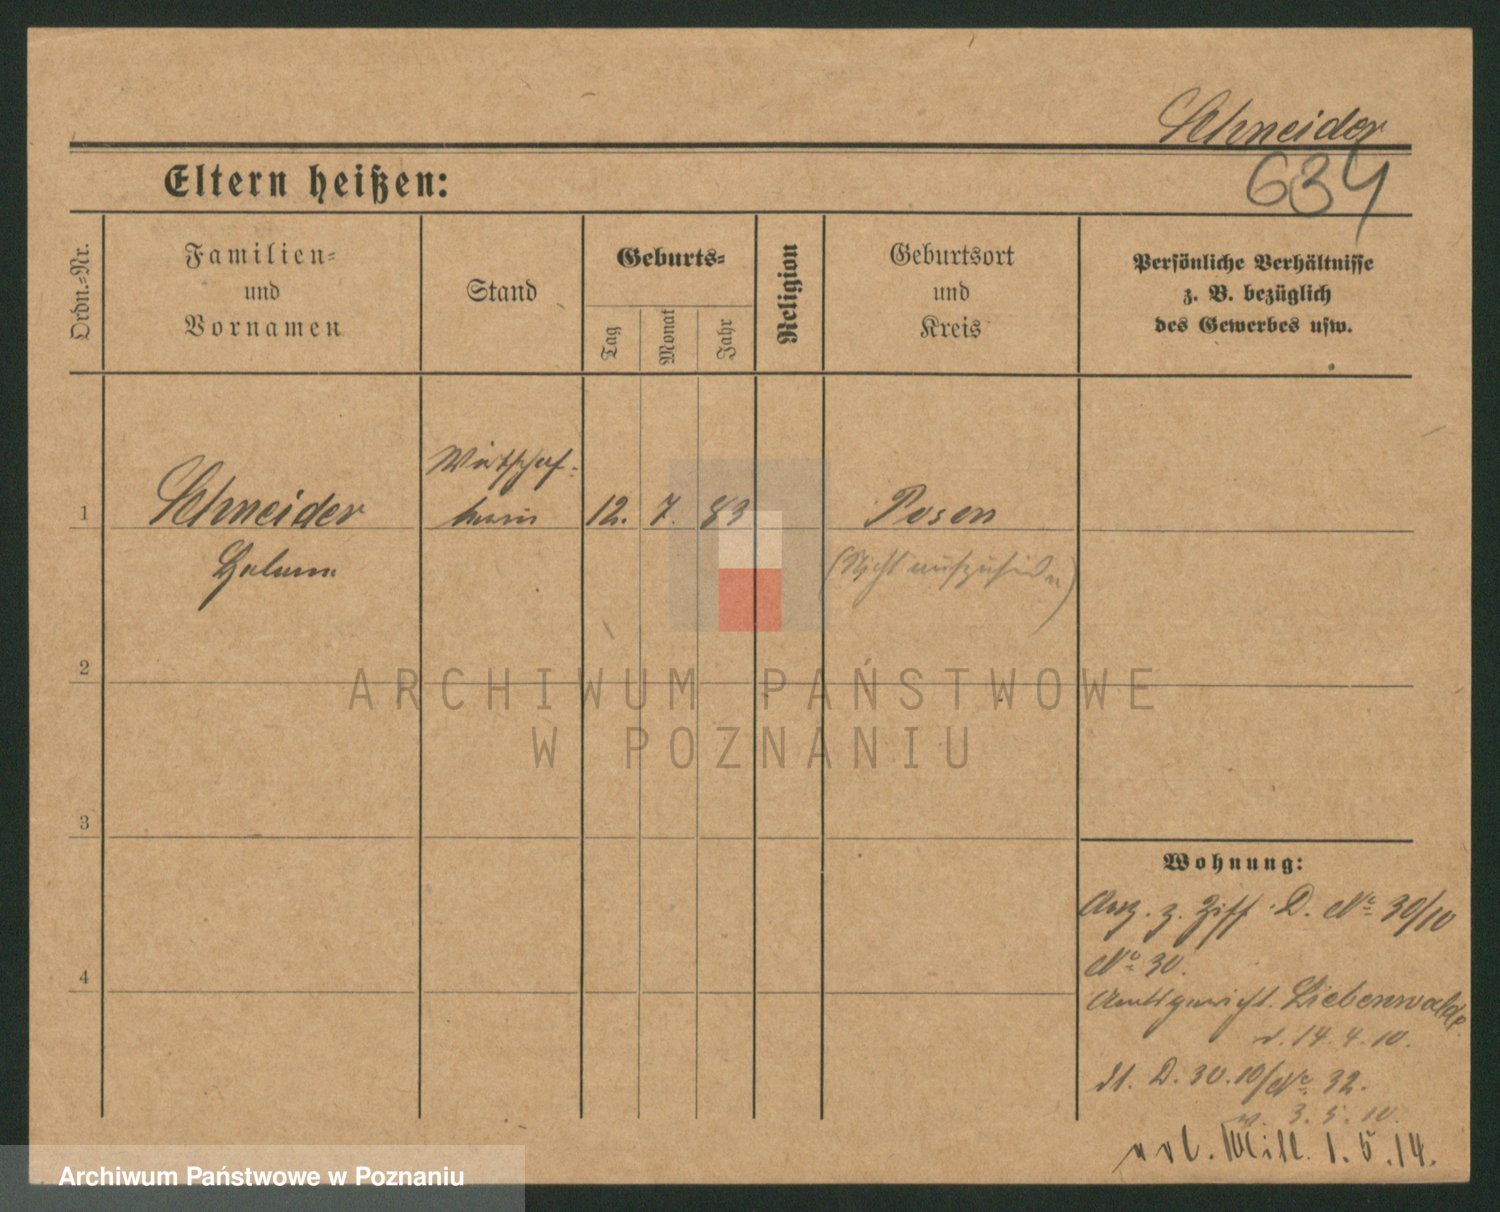 Schneider
634
Eltern heißen:
Ordn.-Nr.
Familien-
und
Vornamen
Stand
Geburts-
Tag
Monat
Jahr
Religion
Geburtsort
und
Kreis
Persönliche Verhältnisse
z. B. bezüglich
des Gewerbes usw.
Wirtschaf-
1
Schneider
12. 7. 83
Posen
(Nicht
2
ARCHIWUM PAŃSTWOWE
W POZNANIU
3
Wohnung:
Anz. z. Ziff. D. No 30/10
No 30.
4
Amtsgericht. Liebenwalde
v. 14. 4. 10.
D. 30.10/No 32.
3. 5. 10.
1.5.14.
Archiwum Państwowe w Poznaniu